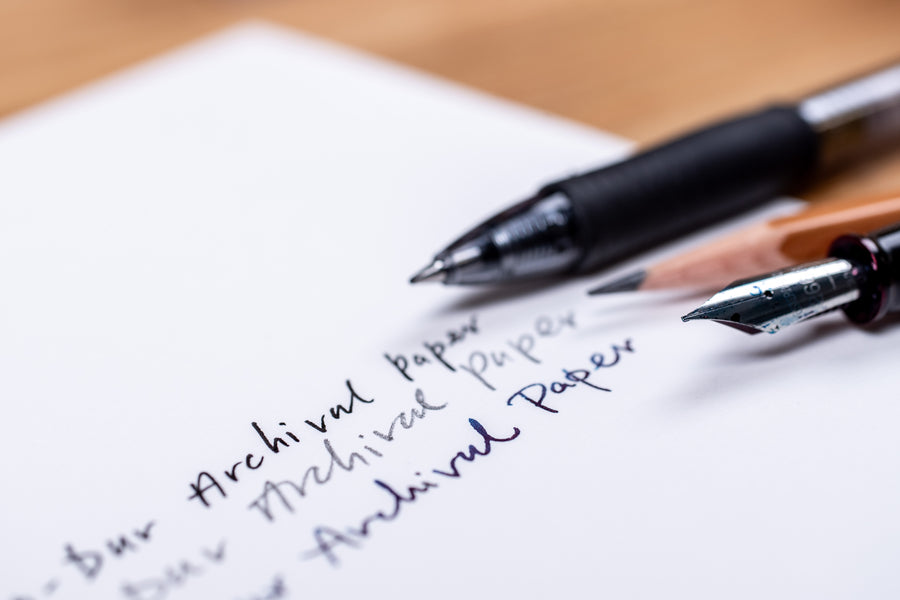 Dur Archival paper
Dur Archival paper
Archival Paper